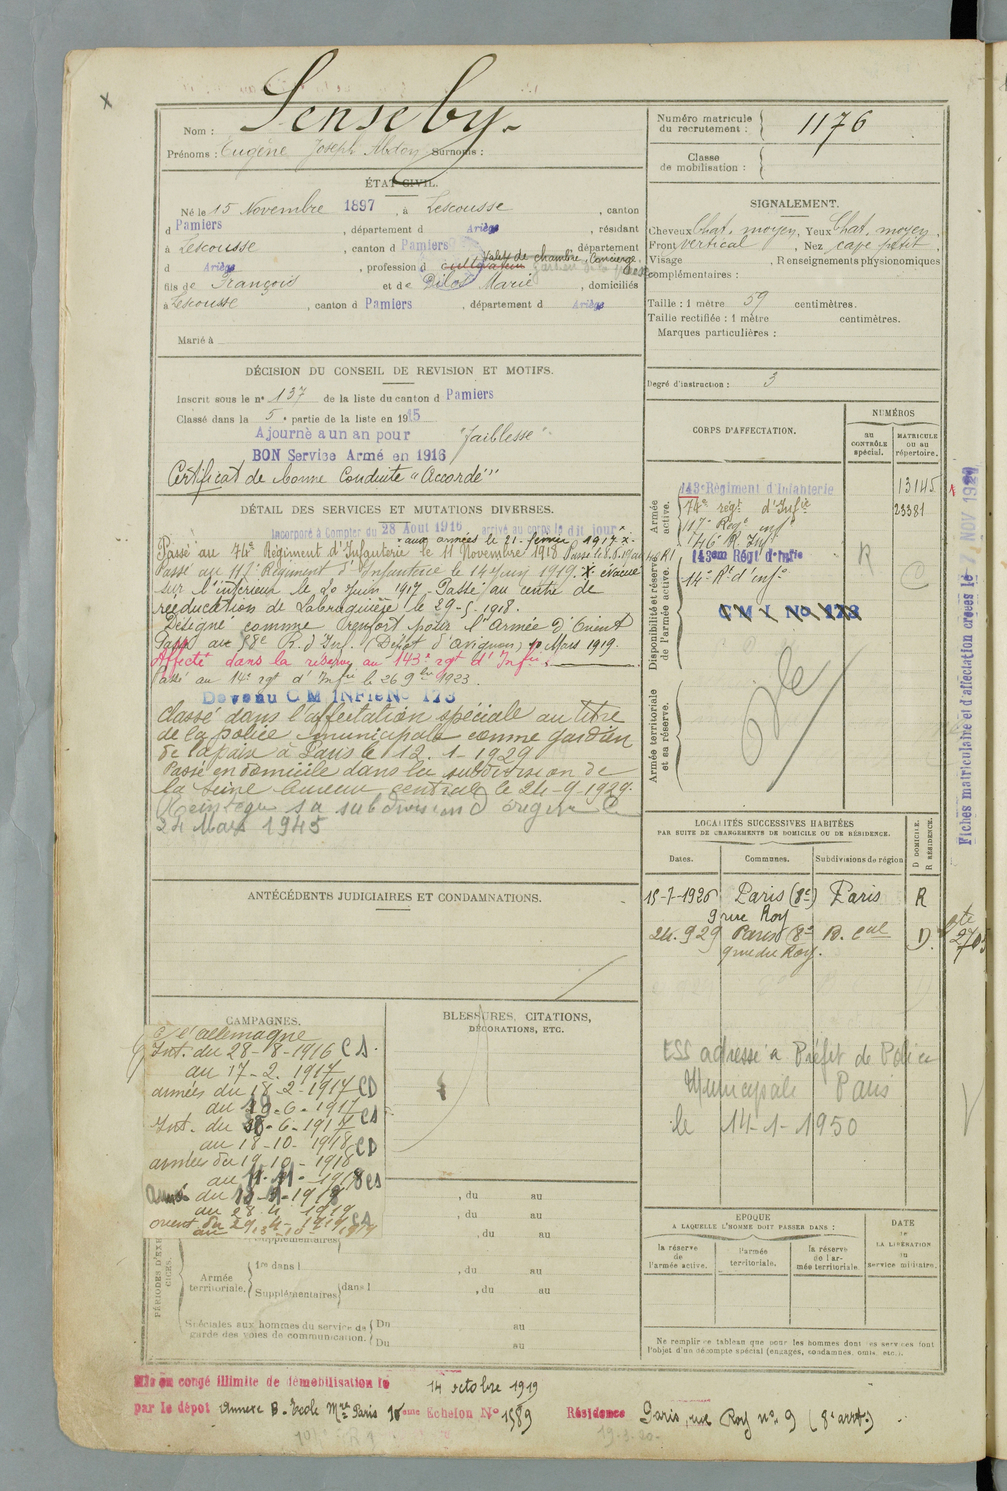 Nom : Senseby
Prénoms : Eugène Joseph Abdon Surnoms :
Numéro matricule du recrutement : 1176
Classe de mobilisation :
ÉTAT CIVIL.
Né le 15 Novembre 1897, à Lescousse, canton
d Pamiers, département d Ariège, résidant
à Lescousse, canton d Pamiers, département
d Ariège, profession d cultivateur Valet de chambre, Concierge,
fils de François et de Dilat Marie, domiciliés
à Lescousse, canton d Pamiers, département d Ariège
Marié à
SIGNALEMENT.
Cheveux Chat. moyen, Yeux Chat. moyen,
Front vertical, Nez cave petit,
Visage , Renseignements physionomiques
complémentaires :
Taille : 1 mètre 59 centimètres.
Taille rectifiée : 1 mètre centimètres.
Marques particulières :
Degré d'instruction : 3
DÉCISION DU CONSEIL DE REVISION ET MOTIFS.
Inscrit sous le n° 137 de la liste du canton d Pamiers
Classé dans la 5e partie de la liste en 1915
Ajourné a un an pour "Faiblesse"
BON Service Armé en 1916
Certificat de bonne Conduite "Accordé"
DÉTAIL DES SERVICES ET MUTATIONS DIVERSES.
Incorporé à Compter du 28 Aout 1916 arrivé au corps le dit jour x
x aux armées le 21 février 1917 x
Passé au 74e Régiment d'Infanterie le 11 Novembre 1918
Passé au 117e Régiment d'Infanterie le 14 Juin 1919. x évacué
sur l'intérieur le 20 Juin 1917 Passé au centre de
rééducation de Labruguière le 29-5-1918.
Désigné comme Renfort pour l'Armée d'Orient
Passé au 58e R. d'Inf. (Dépôt d'Avignon) 10 Mars 1919.
Affecté dans la réserve au 143e rgt d'Infie.
Passé au 14e rgt d'Infie le 26 9bre 1923.
Devenu C M INFie No 173
Classé dans l'affectation spéciale au titre
de la police municipale comme gardien
de la paix à Paris le 12-1-1929
Passé en domicile dans la subdivision de
la Seine bureau central le 24-9-1929.
Réintègre sa subdivision d'origine le
24 Mars 1945
CORPS D'AFFECTATION.
NUMÉROS
au CONTRÔLE spécial.
MATRICULE ou au répertoire.
Armée active.
143e Régiment d'Infanterie 13145
74e régt d'Infie 23381
117e Regt inf
146e R. Inf
Disponibilité et réserve de l'armée active.
143em Régt d'Infie
14e Rt d'infie
C M I No 173
R
Armée territoriale et sa réserve.
Fiches matriculaire et d'affectation créées le 7 NOV 192
LOCALITÉS SUCCESSIVES HABITÉES
PAR SUITE DE CHANGEMENTS DE DOMICILE OU DE RÉSIDENCE.
Dates. Communes. Subdivisions de région D DOMICILE. R RÉSIDENCE.
15-7-1926 Paris (8e) Paris R
9 rue Roy
24.9 29 Paris (8e B. cal D.
9 rue du Roy.
ANTÉCÉDENTS JUDICIAIRES ET CONDAMNATIONS.
ESS adressé a Préfet de Police
Municipale Paris
le 14-1-1950
CAMPAGNES.
c/ l'allemagne
Int. du 28-8-1916 CS.
au 17-2-1917
armées du 18-2-1917 CD
au 19-6-1917
Int. du 20-6-1917 CS
au 18-10-1918
armées du 19-10-1918 CD
au 11-11-1918
au 28.4.1919
BLESSURES, CITATIONS, DÉCORATIONS, ETC.
, du au
, du au
, du au
, du au
, du au
au
au
PÉRIODES D'EXERCICES.
Supplémentaires
Armée territoriale. 1re dans l
Supplémentaires dans l
Spéciales aux hommes du service de garde des voies de communication. Du
Du
EPOQUE
A LAQUELLE L'HOMME DOIT PASSER DANS :
la réserve de l'armée active. l'armée territoriale. la réserve de l'armée territoriale.
DATE de LA LIBÉRATION du service militaire.
Ne remplir ce tableau que pour les hommes dont les services font
l'objet d'un décompte spécial (engagés, condamnés, omis, etc.).
Mis en congé illimité de démobilisation le 14 octobre 1919
par le dépôt Annexe B. Ecole Mre Paris 10eme Echelon No 1589 Résidence Paris, rue Roy no. 9 (8e arrt)
19.3.20.